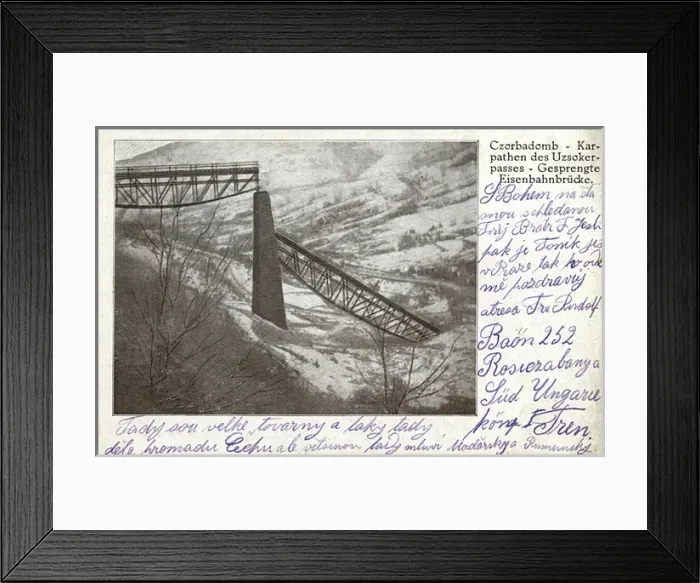 Czorbadomb - Kar-
pathen des Uzsoker-
passes - Gesprengte
Eisenbahnbrücke.
S Bohem na šta
snou schledanou
Tvůj Bratr F. Jest
pak je Toník již
v Praze tak ho ode
mě pozdravuj
atresa Fra Rudolf
Baön 252
Rosiczabanya
Süd Ungarie
köng F Tren
Tady sou velké tovarny a taky tady
dělá hromadu Čechu ale větsinou tady mluví Maďarsky a Rumunsky.